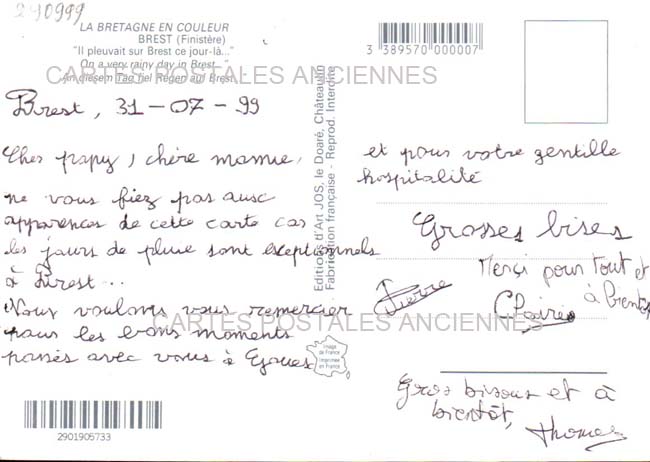 290999
LA BRETAGNE EN COULEUR
BREST (Finistère)
"Il pleuvait sur Brest ce jour-là..."
On a very rainy day in Brest...
An diesem Tag fiel Regen auf Brest...
3 389570 000007
CARTES POSTALES ANCIENNES
Editions d'Art JOS, le Doaré, Châteaulin
Fabrication française - Reprod. Interdite
Brest, 31-07-99
Cher papy, chère mamie,
ne vous fiez pas aux
apparences de cette carte car
les jours de pluie sont exceptionnels
à Brest...
Nous voulons vous remercier
pour les bons moments
passés avec vous à
et pour votre gentille
hospitalité
Grosses bises
Pierre
Merci pour tout et
à bientôt
Claire
CARTES POSTALES ANCIENNES
Image
de France
Imprimée
en France
Gros bisous et à
bientôt,
Thomas
2901905733